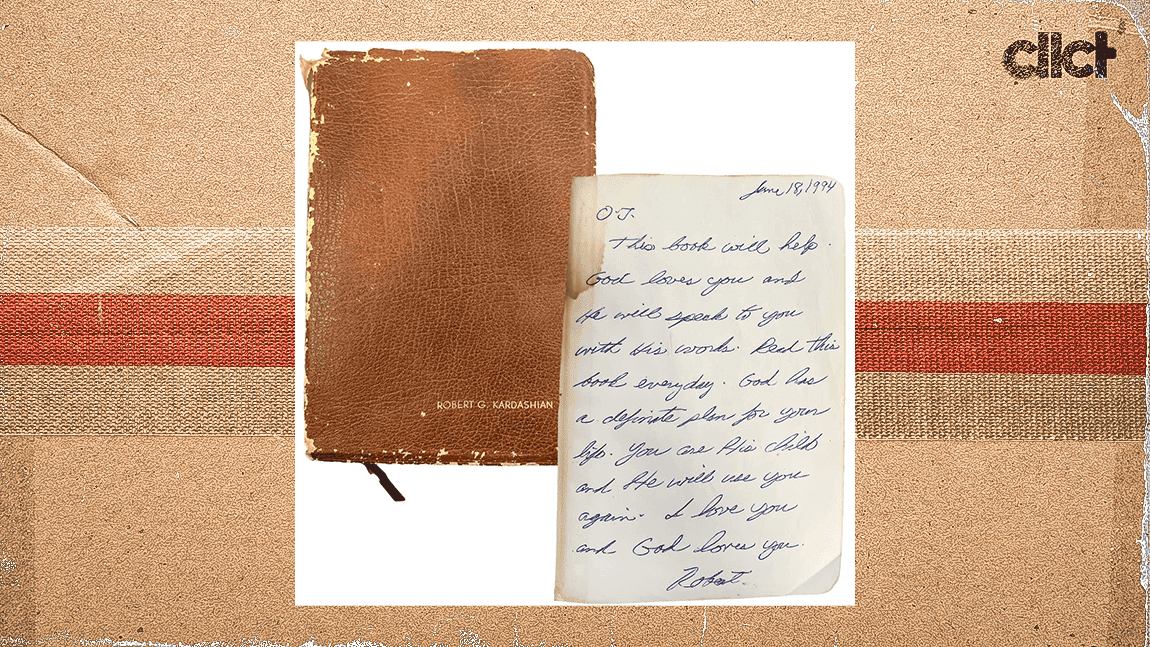 cllct
ROBERT G. KARDASHIAN
June 18, 1994
O.J.
This book will help.
God loves you and
He will speak to you
with His words. Read this
book everyday. God has
a definite plan for your
life. You are His child
and He will use you
again. I love you
and God loves you.
Robert